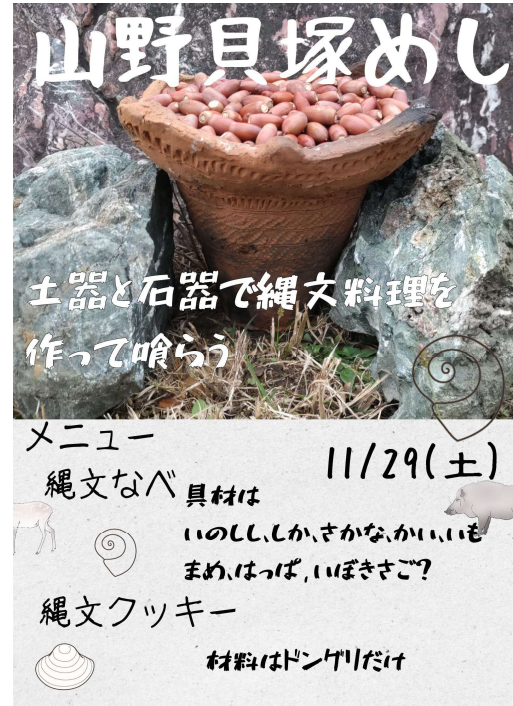 山野貝塚めし
土器と石器で縄文料理を
作って喰らう
メニュー
11/29(土)
縄文なべ
具材は
いのしし、しか、さかな、かい、いも
まめ、はっぱ,いぼきさご?
縄文クッキー
材料はドングリだけ